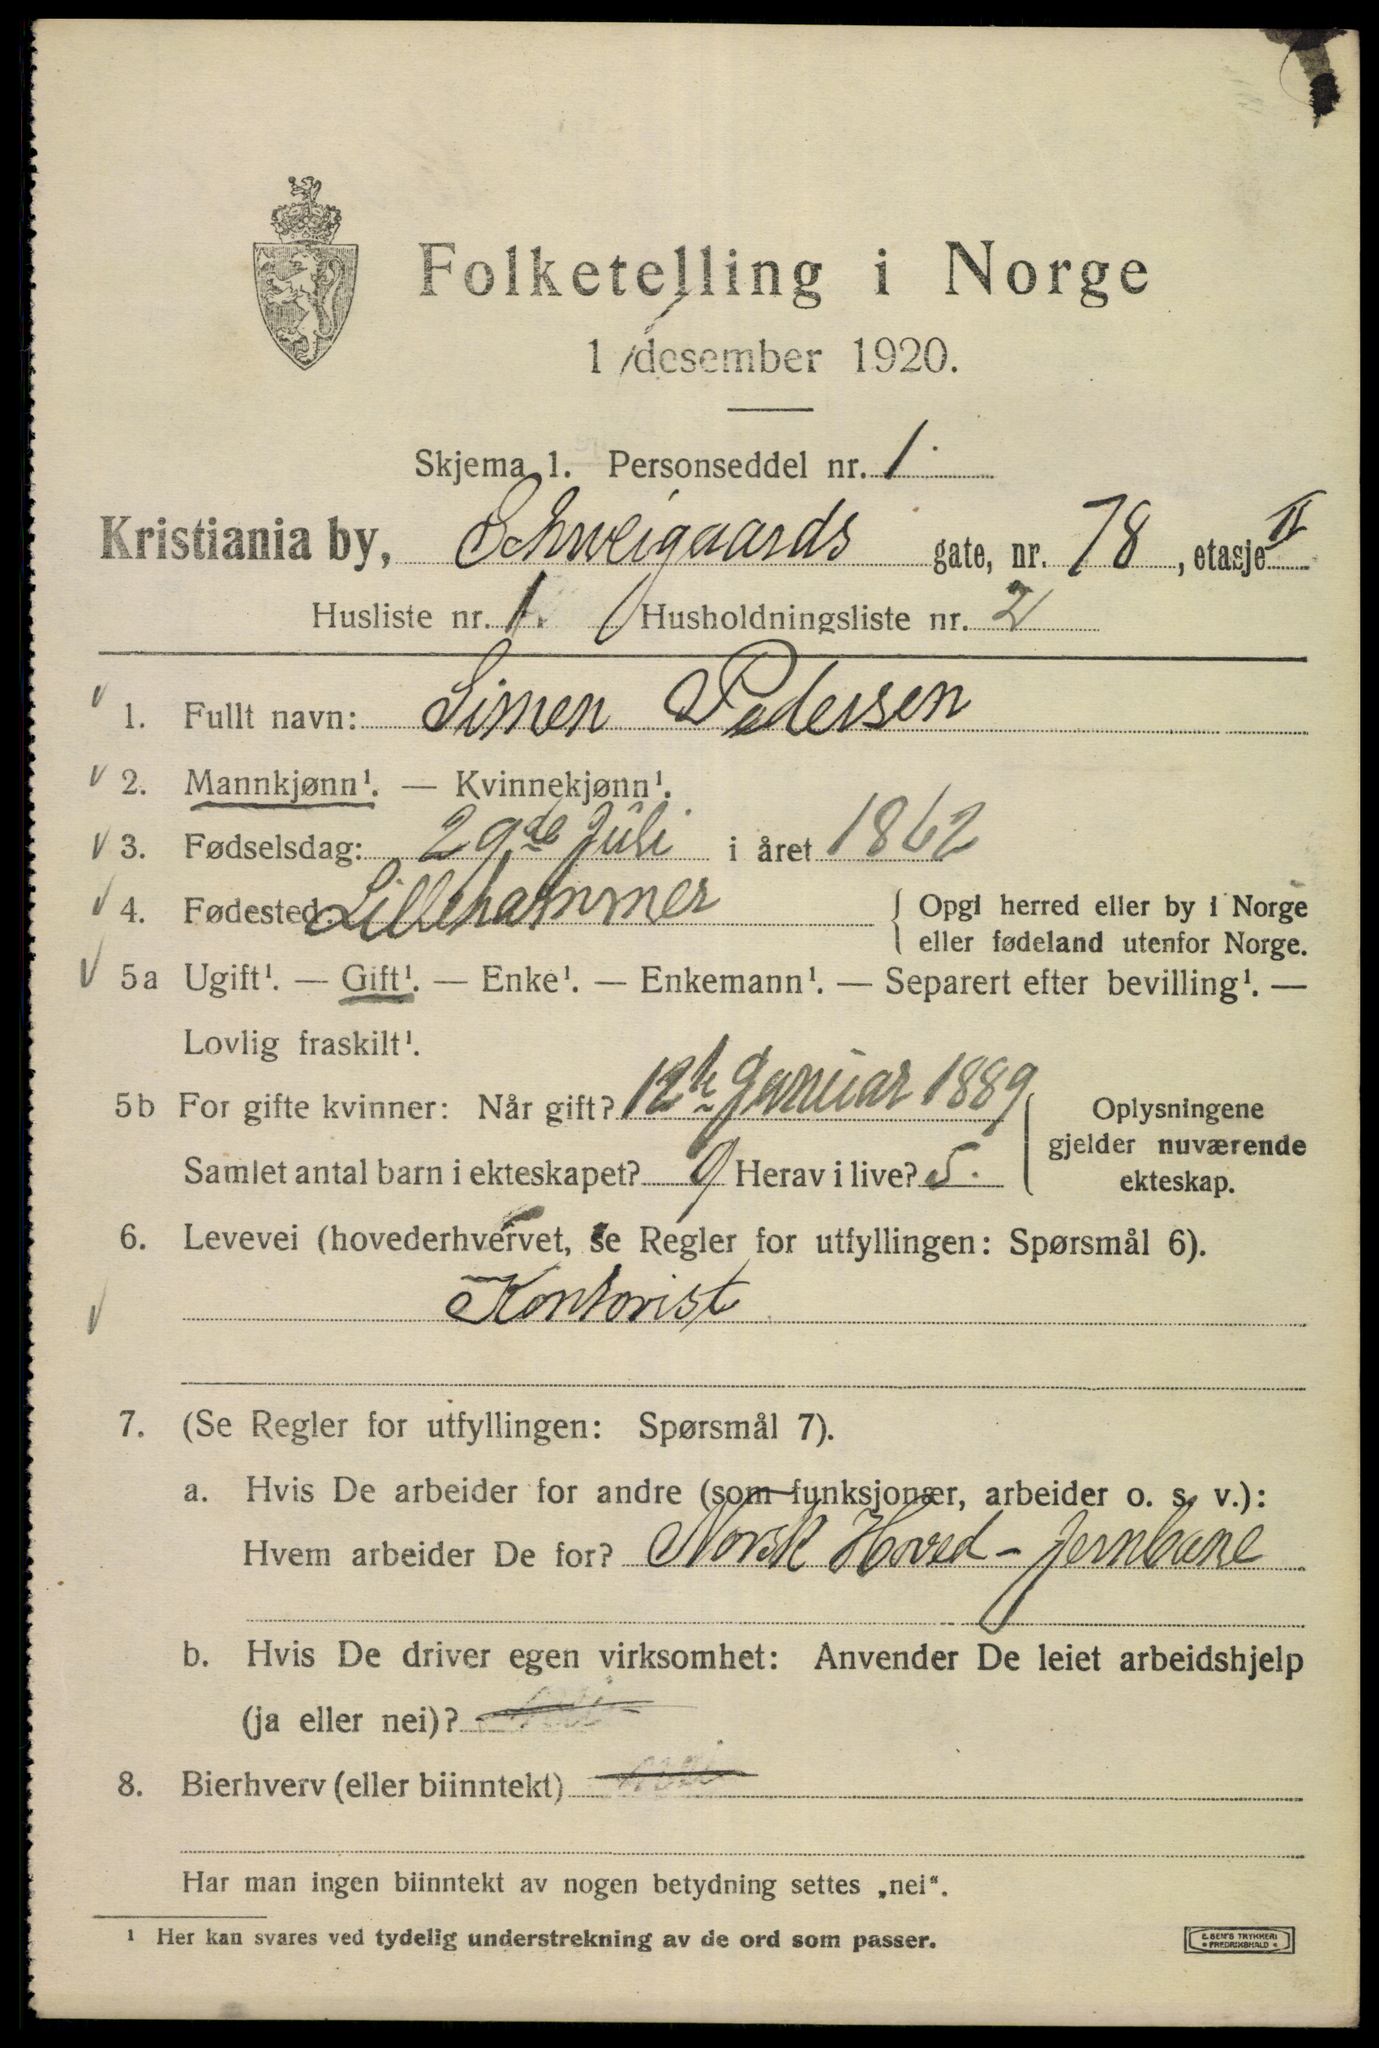 Folketelling i Norge
1 desember 1920.
Skjema 1. Personseddel nr. 1.
Kristiania by, Schweigaards gate, nr. 78, etasje II
Husliste nr. 1. Husholdningsliste nr. 2
1. Fullt navn: Simen Pedersen
2. Mannkjønn¹. — Kvinnekjønn¹.
3. Fødselsdag: 29de Juli i året 1862
4. Fødested: Lillehammer { Opgi herred eller by i Norge
eller fødeland utenfor Norge.
5a Ugift¹. — Gift¹. — Enke¹. — Enkemann¹. — Separert efter bevilling¹. —
Lovlig fraskilt¹.
5b For gifte kvinner: Når gift? 12te Januar 1889
Samlet antal barn i ekteskapet? 9 Herav i live? 5.
Oplysningene
gjelder nuværende
ekteskap.
6. Levevei (hovederhvervet, se Regler for utfyllingen: Spørsmål 6).
Kontorist
7. (Se Regler for utfyllingen: Spørsmål 7).
a. Hvis De arbeider for andre (som funksjonær, arbeider o. s. v.):
Hvem arbeider De for? Norsk Hoved-Jernbane
b. Hvis De driver egen virksomhet: Anvender De leiet arbeidshjelp
(ja eller nei)? nei
8. Bierhverv (eller biinntekt) nei
Har man ingen biinntekt av nogen betydning settes „nei“.
¹ Her kan svares ved tydelig understrekning av de ord som passer.
E. SEM'S TRYKKERI
FREDRIKSHALD